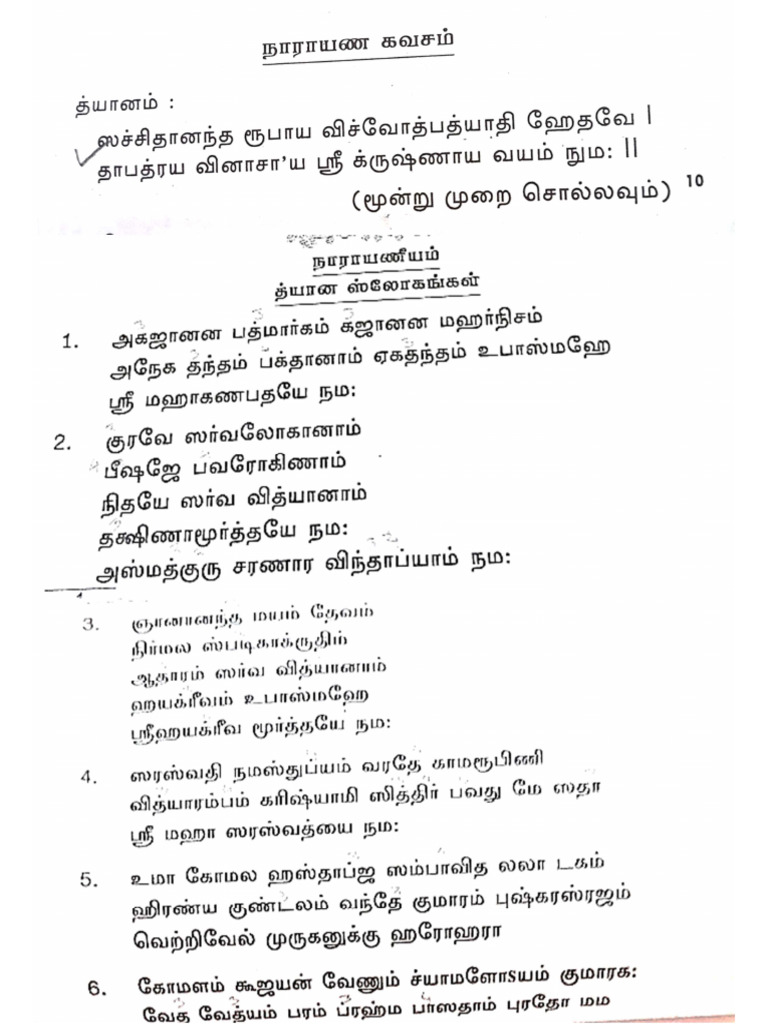 நாராயண கவசம்
த்யானம் :
ஸச்சிதானந்த ரூபாய விச்வோத்பத்யாதி ஹேதவே |
தாபத்ரய வினாசா'ய ஸ்ரீ க்ருஷ்ணாய வயம் நும: ||
(மூன்று முறை சொல்லவும்) 10
நாராயணீயம்
த்யான ஸ்லோகங்கள்
1. அகஜானன பத்மார்கம் கஜானன மஹர்நிசம்
அநேக தந்தம் பக்தானாம் ஏகதந்தம் உபாஸ்மஹே
ஸ்ரீ மஹாகணபதயே நம:
2. குரவே ஸர்வலோகானாம்
பீஷஜே பவரோகிணாம்
நிதயே ஸர்வ வித்யானாம்
தக்ஷிணாமூர்த்தயே நம:
அஸ்மத்குரு சரணார விந்தாப்யாம் நம:
3. ஞானானந்த மயம் தேவம்
நிர்மல ஸ்படிகாக்ருதிம்
ஆதாரம் ஸர்வ வித்யானாம்
ஹயக்ரீவம் உபாஸ்மஹே
ஸ்ரீஹயக்ரீவ மூர்த்தயே நம:
4. ஸரஸ்வதி நமஸ்துப்யம் வரதே காமரூபிணி
வித்யாரம்பம் கரிஷ்யாமி ஸித்திர் பவது மே ஸதா
ஸ்ரீ மஹா ஸரஸ்வத்யை நம:
5. உமா கோமல ஹஸ்தாப்ஜ ஸம்பாவித லலா டகம்
ஹிரண்ய குண்டலம் வந்தே குமாரம் புஷ்கரஸ்ரஜம்
வெற்றிவேல் முருகனுக்கு ஹரோஹரா
6. கோமளம் கூஜயன் வேணும் ச்யாமளோSயம் குமாரக:
வேத வேத்யம் பரம் ப்ரஹ்ம பாஸதாம் புரதோ மம